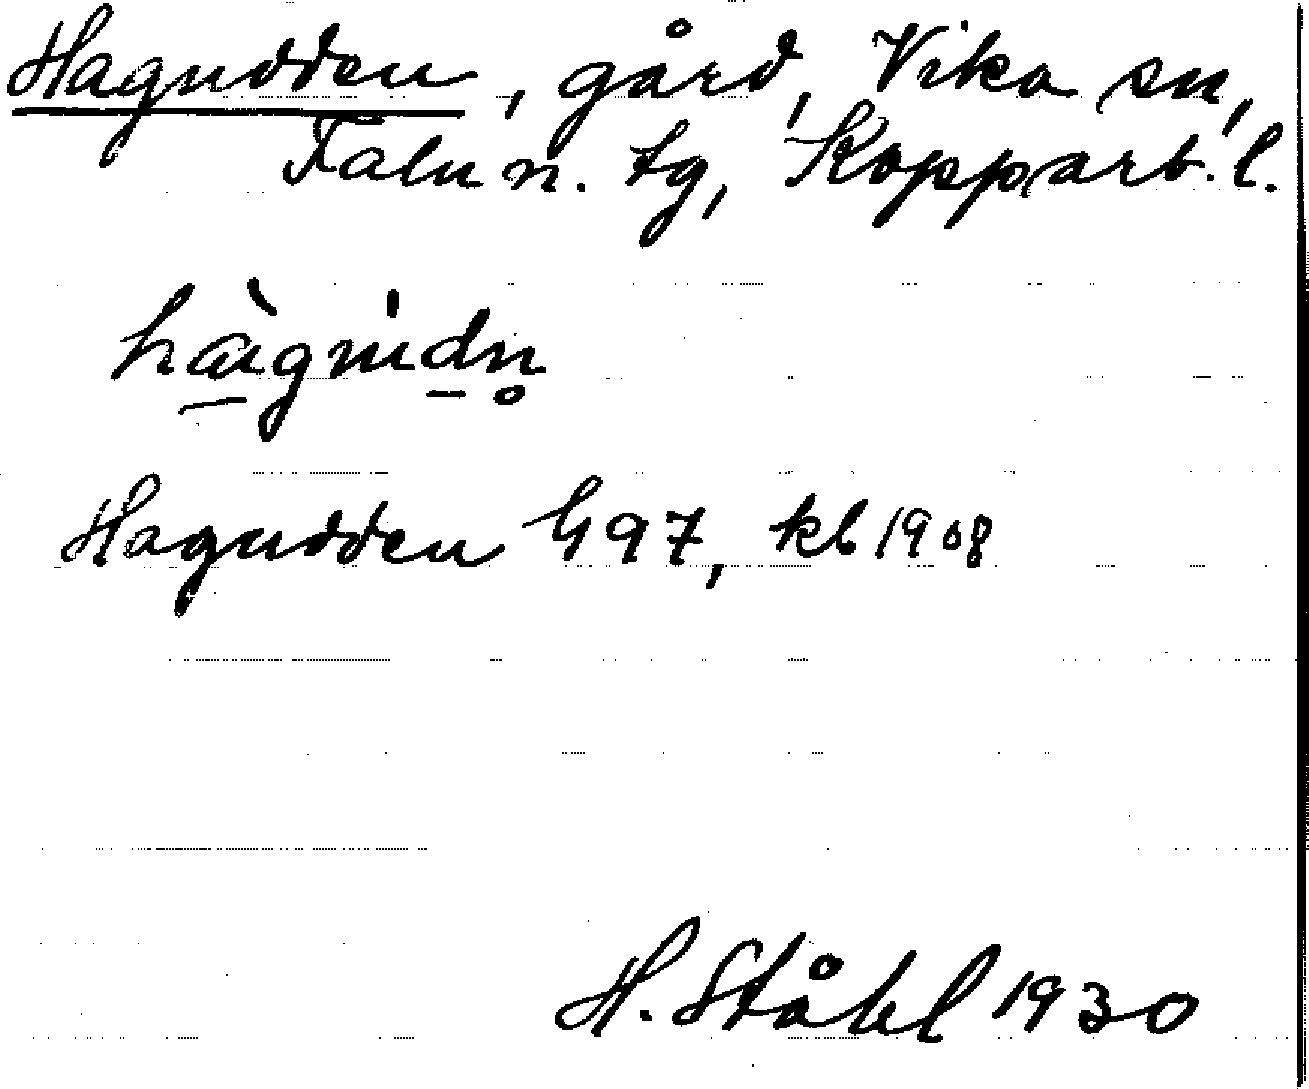 Hagudden, gård, Vika sn,
Falu n. tg, Kopparb. l.
Hagudden G97, kb 1908
H. Ståhl 1930